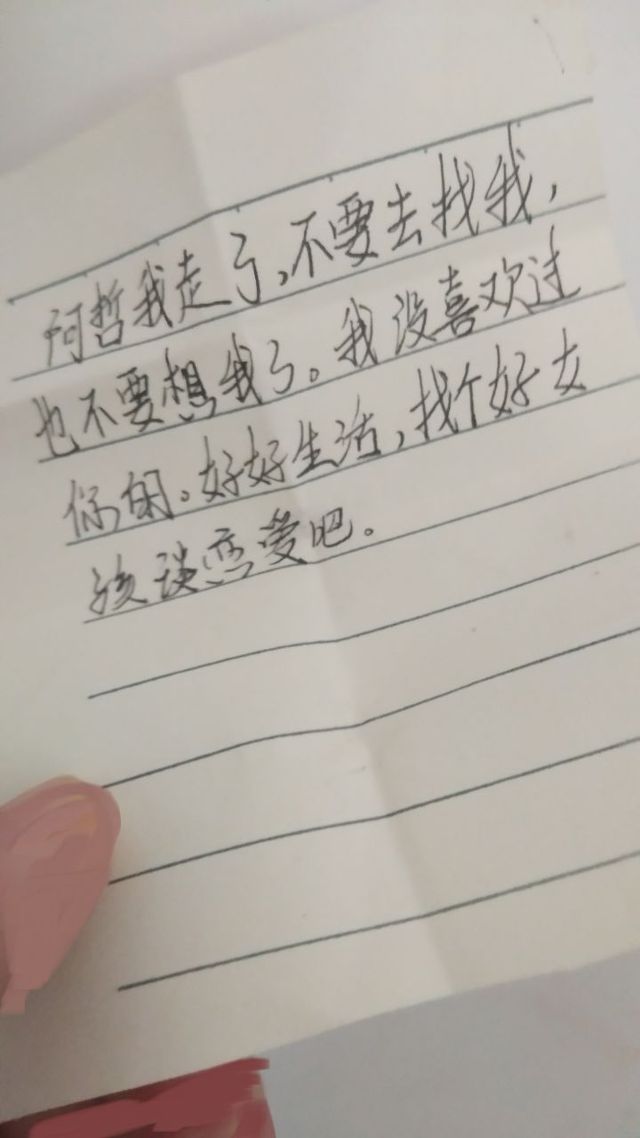 阿哲我走了,不要去找我,
也不要想我了。我没喜欢过
你的。好好生活,找个好女
孩谈恋爱吧。